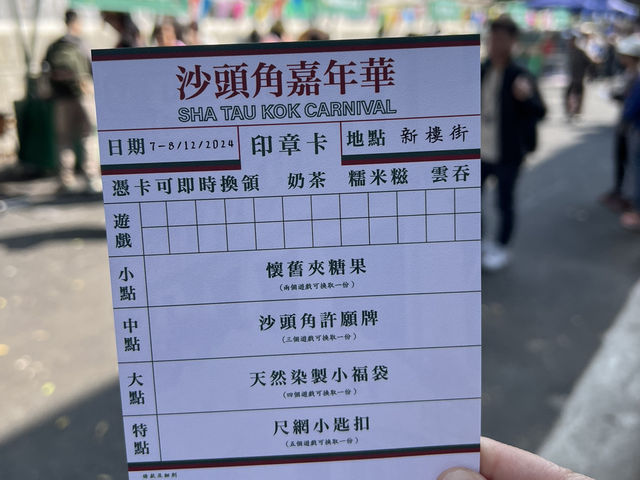 沙頭角嘉年華
SHA TAU KOK CARNIVAL
日期 7-8/12/2024 印章卡 地點 新樓街
憑卡可即時換領 奶茶 糯米糍 雲吞
遊戲
小點 懷舊夾糖果
(兩個遊戲可換取一份)
中點 沙頭角許願牌
(三個遊戲可換取一份)
大點 天然染製小福袋
(四個遊戲可換取一份)
特點 尺網小匙扣
(五個遊戲可換取一份)